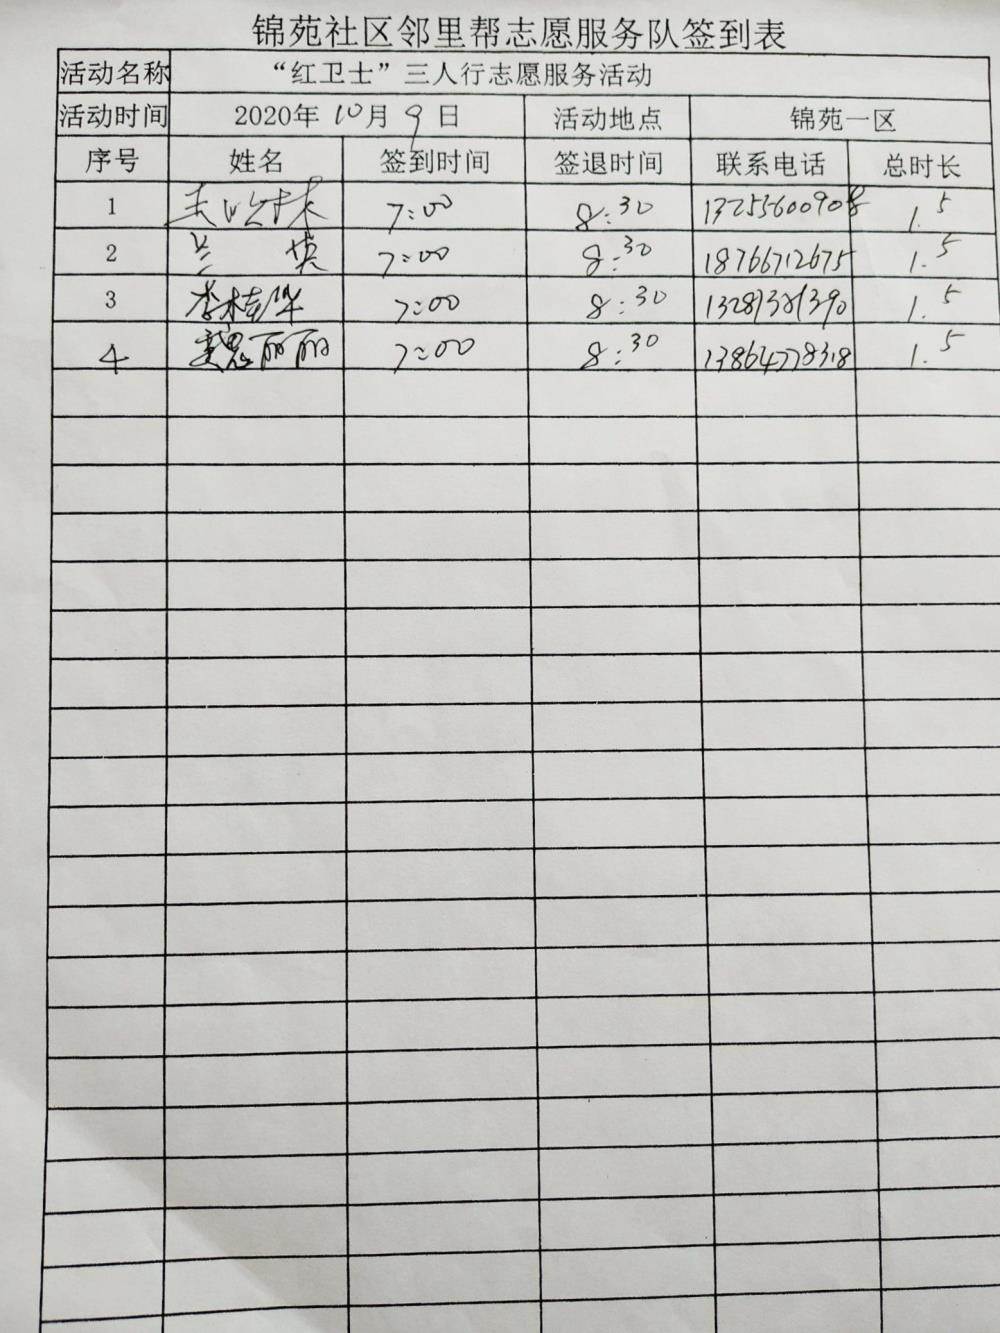 锦苑社区邻里帮志愿服务队签到表
活动名称 “红卫士”三人行志愿服务活动
活动时间 2020年 10月 9日 活动地点 锦苑一区
序号 姓名 签到时间 签退时间 联系电话 总时长
1 7:00 8:30 13255600908 1.5
2 兰英 7:00 8:30 18766712675 1.5
3 李桂华 7:00 8:30 13281381390 1.5
4 窦思丽丽 7:00 8:30 13864778318 1.5